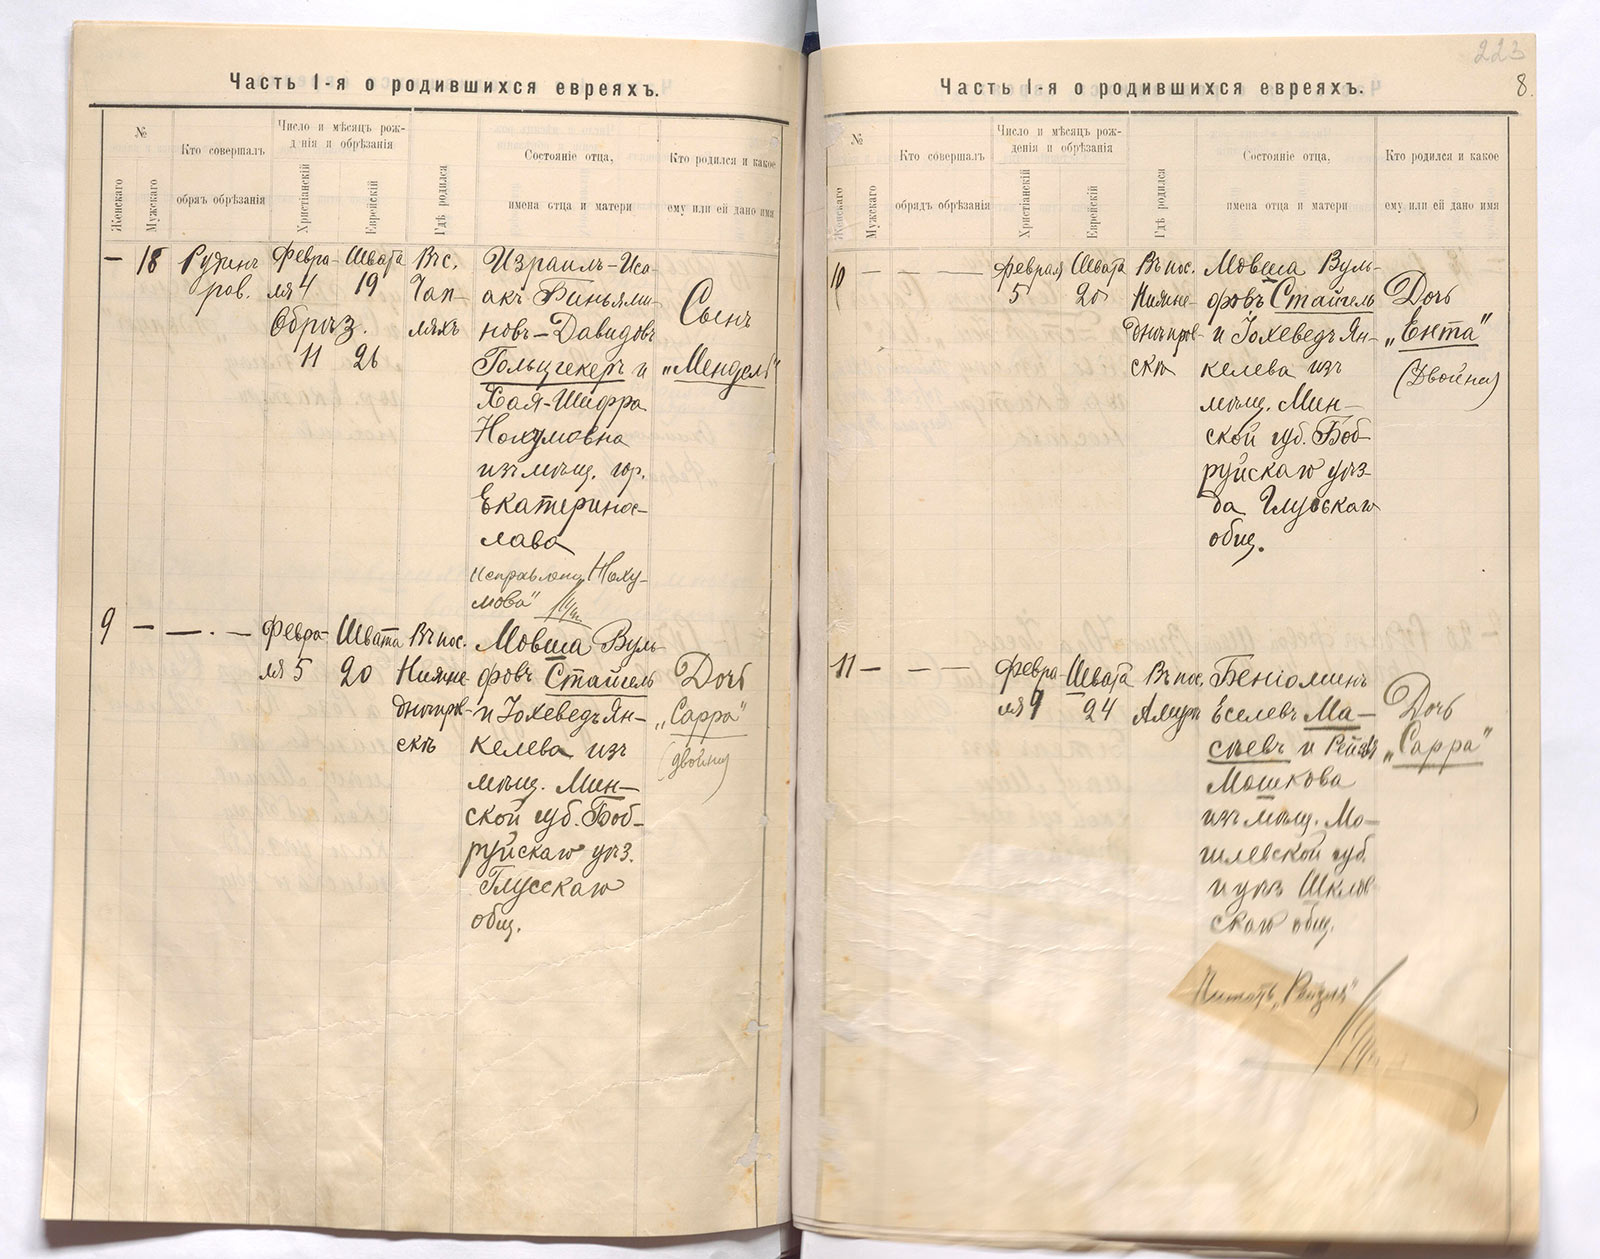 Часть I-я о родившихся евреяхъ.
№
Женскаго
Мужскаго
Кто совершалъ
обрядъ обрѣзанія
Число и мѣсяцъ рож-
д нія и обрѣзанія
Христіанскій
Еврейскій
Гдѣ родился
Состояніе отца,
имена отца и матери
Кто родился и какое
ему или ей дано имя
— 18
Февра-
ля 4
Обрѣз.
11
Швата
19
26
Въ с.
Чап-
ляхъ
Израиль-Иса-
акъ Биньями-
новъ-Давидовъ
Гольцгекеръ и
Хая-Шифра
Нохумовна
изъ мѣщ. гор.
Екатеринос-
лава
Ноху-
мова"
Сынъ
„Мендель"
9 — — . —
Февра-
ля 5
Швата
20
Въ пос.
Нижне-
днѣпров-
скѣ
Мовша Вуль-
фовъ Стайгель
и Іохеведъ Ян-
келева изъ
мѣщ. Мин-
ской губ. Боб-
руйскаго уѣз.
Глусскаго
общ.
Дочь
„Сарра"
(двойни)
223
8.
Часть I-я о родившихся евреяхъ.
№
Женскаго
Мужскаго
Кто совершалъ
обрядъ обрѣзанія
Число и мѣсяцъ рож-
денія и обрѣзанія
Христіанскій
Еврейскій
Гдѣ родился
Состояніе отца,
имена отца и матери
Кто родился и какое
ему или ей дано имя
10 — — —
Февраля
5
Швата
20
Въ пос.
Нижне-
днѣпров-
скѣ
Мовша Вуль-
фовъ Стайгель
и Іохеведъ Ян-
келева изъ
мѣщ. Мин-
ской губ. Боб-
руйскаго уѣз-
да Глусскаго
общ.
Дочь
„Ента"
(Двойни)
11 — — —
Февра-
ля 9
Швата
24
Въ пос.
Амурѣ
Беніоминъ
Еселевъ Ма-
и
Мошкова
изъ мѣщ. Мо-
гилевской губ.
и уѣз Шклов-
скаго общ.
Дочь
„Сарра"